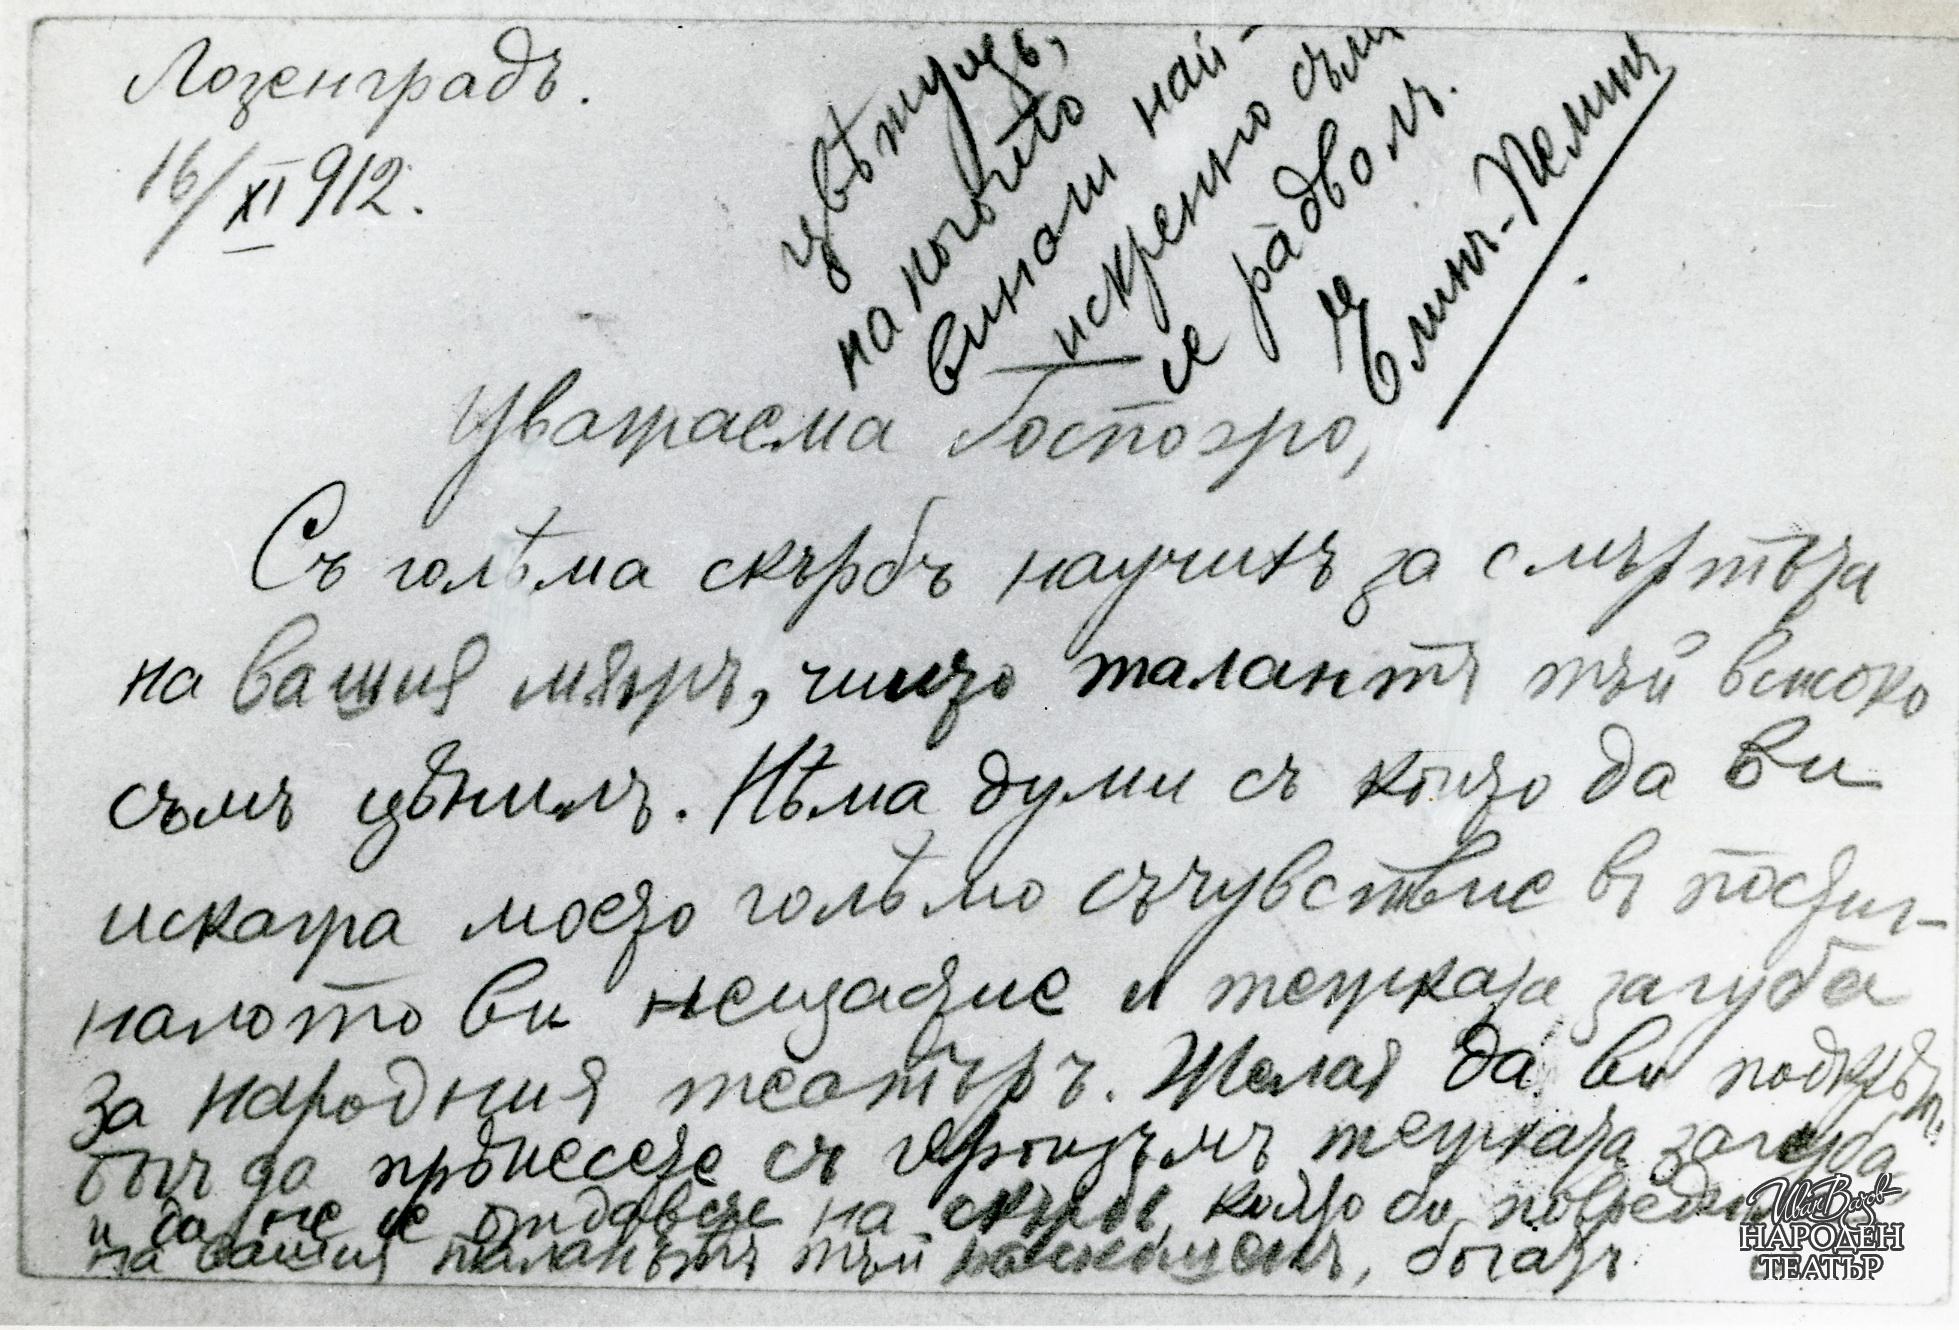 Лозенградъ.
16/XI 912.
Уважаема Госпожо,
Съ голѣма скърбь научихъ за смъртьта
на вашия мѫжъ, чийто талантъ тъй високо
съмъ цѣнилъ. Нѣма думи съ които да ви
искажа моето голѣмо съчувствие въ пости-
налото ви нещастие и тежката загуба
за народния театъръ. Желая да ви подкрѣпи
богъ да прѣнесете съ героизъмъ тежката загуба
и да не се отдавате на скърбь, която би повредила
на вашия талантъ тъй богатъ
цвѣтущъ,
на когото
винаги най-
искренно съмъ
се радвалъ.
Елинъ-Пелинъ
Иван Вазов
НАРОДЕН
ТЕАТЪР